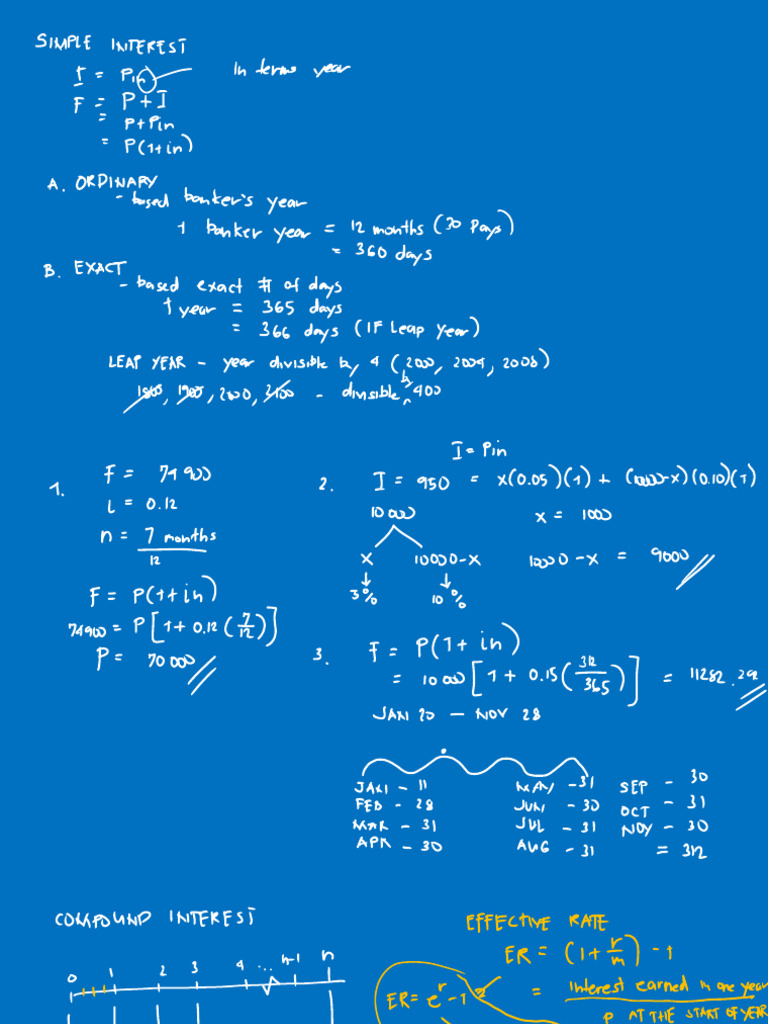 SIMPLE INTEREST
I = Pin In terms year
F = P + I
= P + Pin
= P(1+in)
A. ORDINARY
- based banker's year
1 banker year = 12 months (30 Days)
= 360 days
B. EXACT
- based exact # of days
1 year = 365 days
= 366 days (IF Leap year)
LEAP YEAR - year divisible by 4 (2000, 2004, 2008)
1800, 1900, 2000, 2100 - divisible by 400
1. F = 74900
i = 0.12
n = 7 months
12
F = P(1+in)
74900 = P[1 + 0.12(7/12)]
P = 70000
I = Pin
2. I = 950 = x(0.05)(1) + (10000-x)(0.10)(1)
10000
x = 1000
x 10000-x 10000-x = 9000
10%
3. F = P(1+ in)
= 10000[1 + 0.15(312/365)] = 11282.
JAN 20 - NOV 28
JAN - 11 MAY - 31 SEP - 30
FEB - 28 JUN - 30 OCT - 31
MAR - 31 JUL - 31 NOV - 30
APR - 30 AUG - 31 = 312
COMPOUND INTEREST
0 1 2 3 4 ... n-1 n
EFFECTIVE RATE
ER = (1 + r/m) - 1
ER = e^r - 1
= Interest earned in one year
P AT THE START OF YEAR